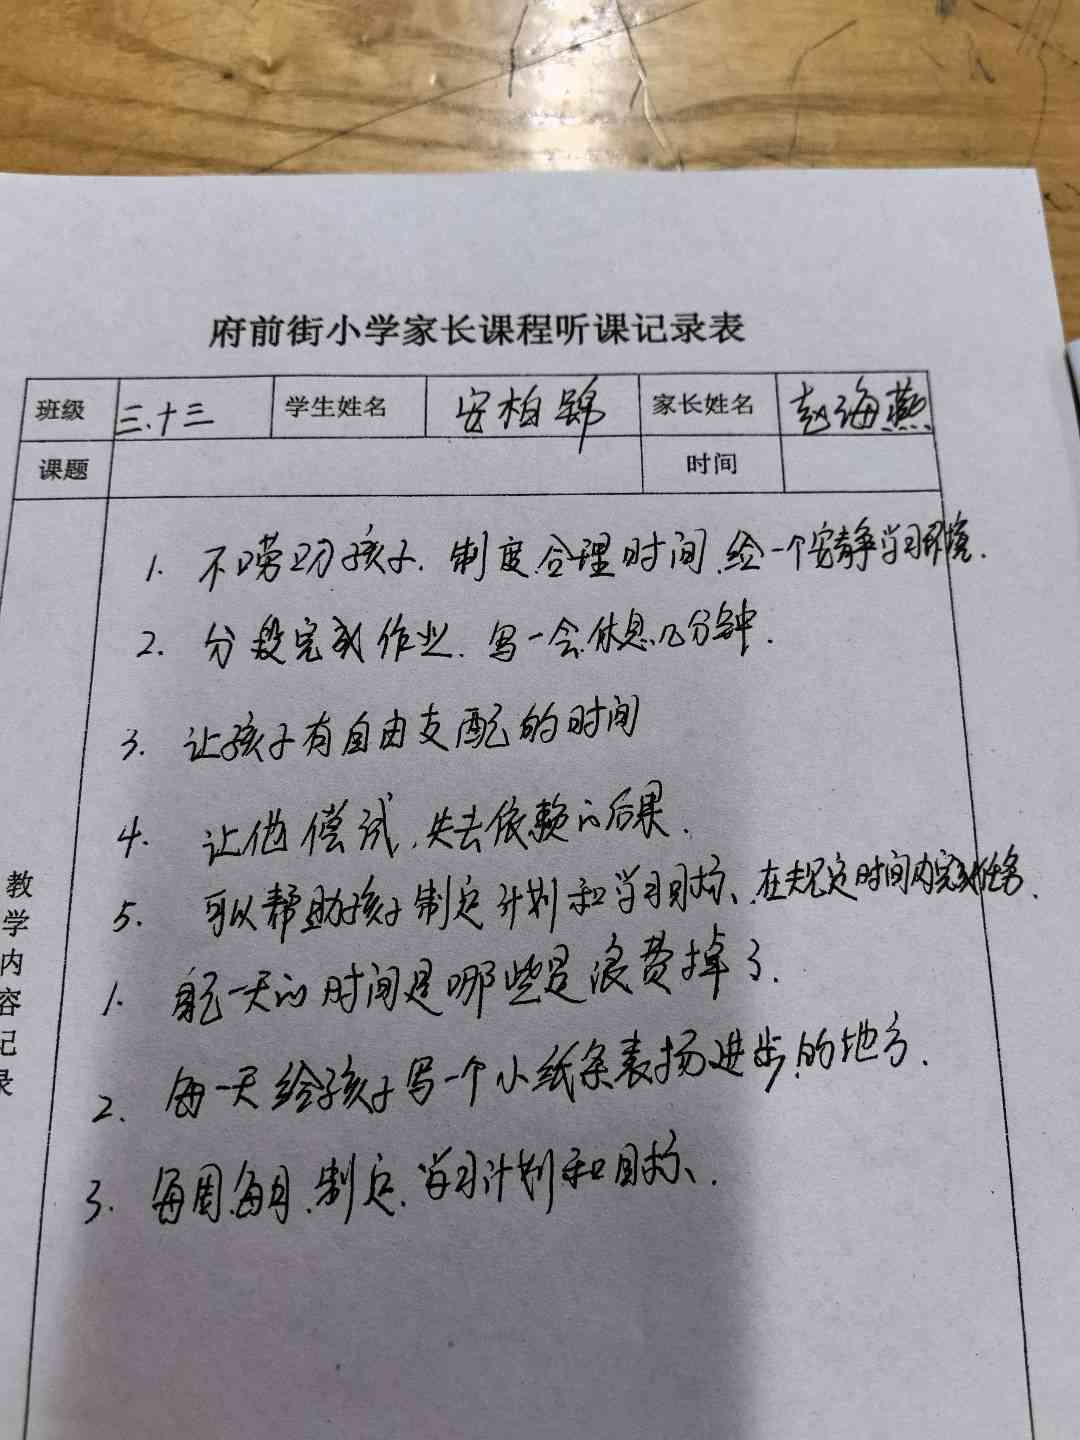 府前街小学家长课程听课记录表
班级 三.十三 学生姓名 安柏锦 家长姓名 赵海燕
课题 时间
教学内容记录
1. 不唠叨孩子. 制度合理时间.给一个安静学习环境.
2. 分段完成作业. 写一会.休息几分钟.
3. 让孩子有自由支配的时间
4. 让他偿试.失去依赖的后果.
5. 可以帮助孩子制定计划和学习目标、在规定时间内完成任务.
1. 一天的时间是哪些是浪费掉了.
2. 每一天给孩子写一个小纸条表扬进步的地方.
3. 每周.每月.制定.学习计划和目标、.